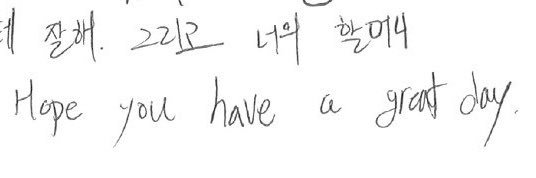 데 잘해. 그리고 너의 할머니
Hope you have a great day.